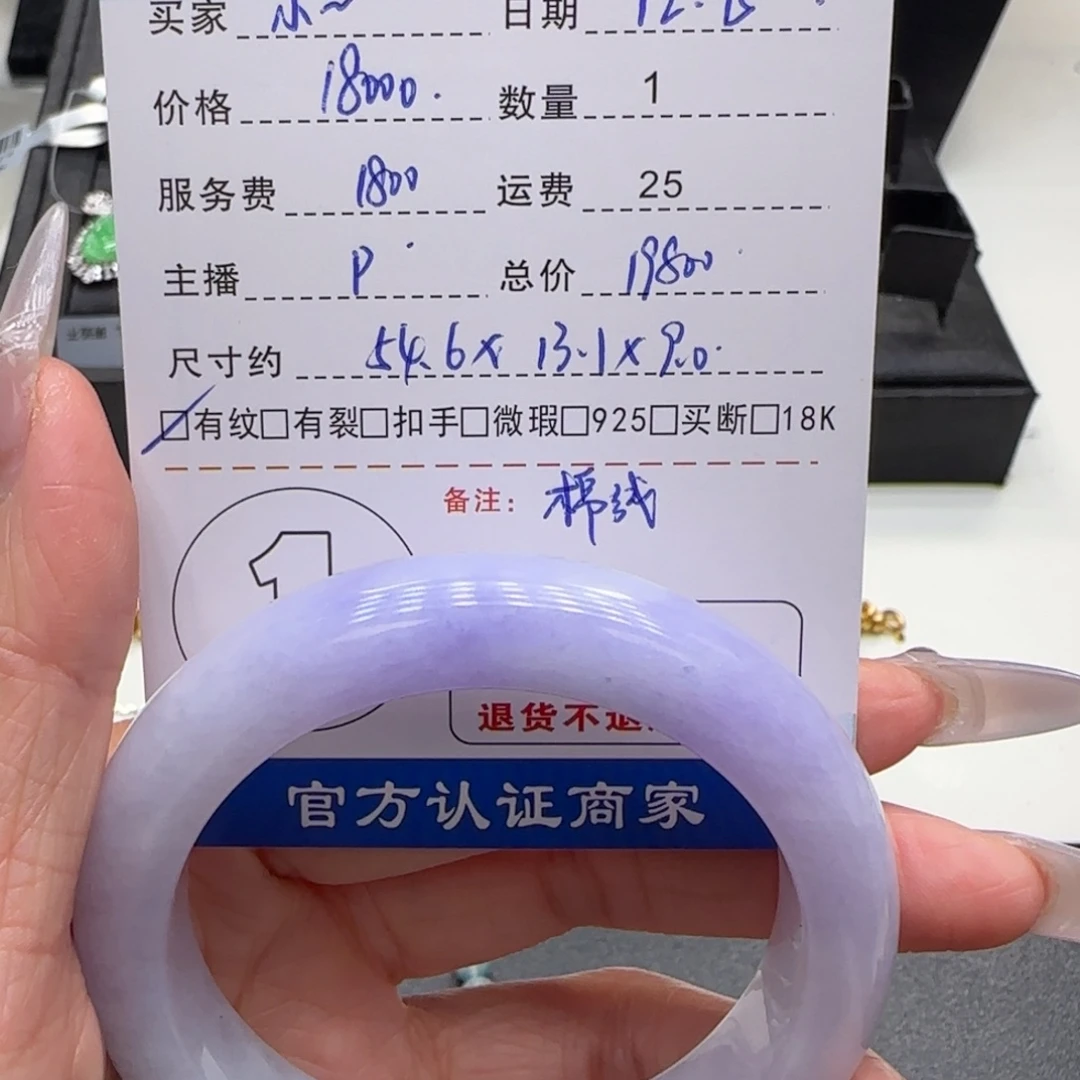 买家 日期
价格 18000. 数量 1
服务费 1800 运费 25
主播 P 总价 19800
尺寸约 54.6x 13.1x9.0
□有纹□有裂□扣手□微瑕□925□买断□18K
备注: 棉线
1
退货不退
官方认证商家